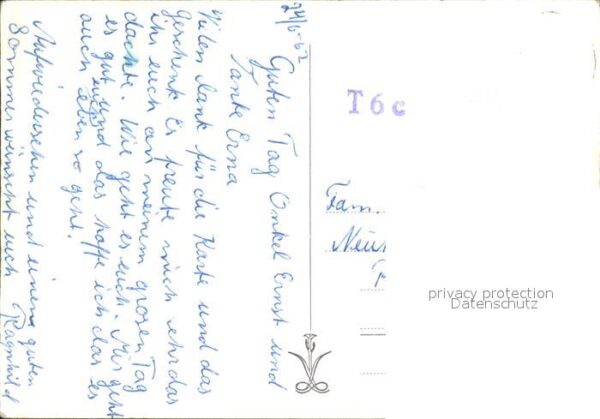 24/5-62
Guten Tag Onkel Ernst und
Tante Erna
Vilen Dank für die Karte und das
geschenk Es freute mich sehr das
ihr euch an meinem grosen Tag
dachte. Wie geht es euch. Mir geht
es gut und das hoffe ich das es
auch eben so geht.
Aufwiedersehen und einen guten
Sommer wünscht euch
Ragnhild
T6c
Fam.
privacy protection
Datenschutz